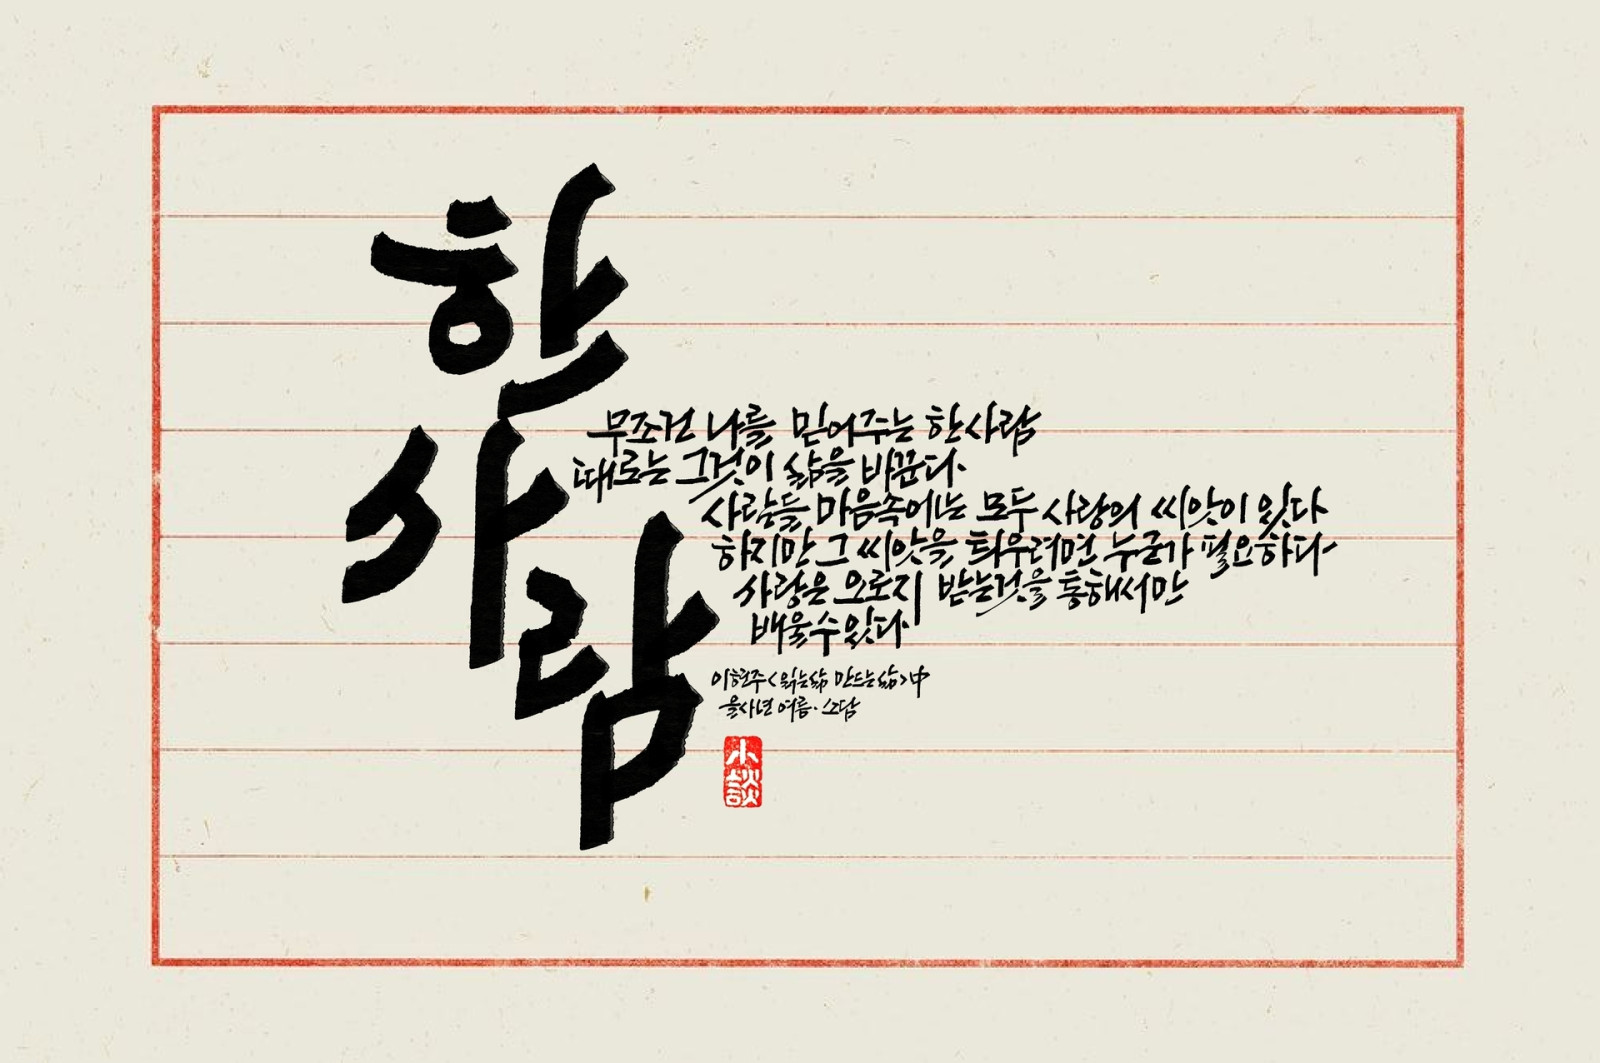 한
사
람
무조건 나를 믿어주는 한사람
때로는 그것이 삶을 바꾼다.
사람들 마음속에는 모두 사랑의 씨앗이 있다
하지만 그 씨앗을 틔우려면 누군가 필요하다.
사랑은 오로지 받는것을 통해서만
배울수있다.
이현주<읽는삶 만드는삶>中
을사년 여름·소담
小談